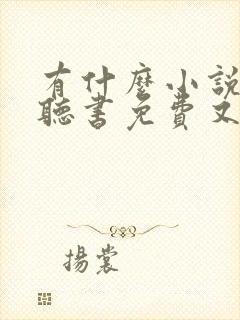 有什麼小說
聽書免費又
揚裳